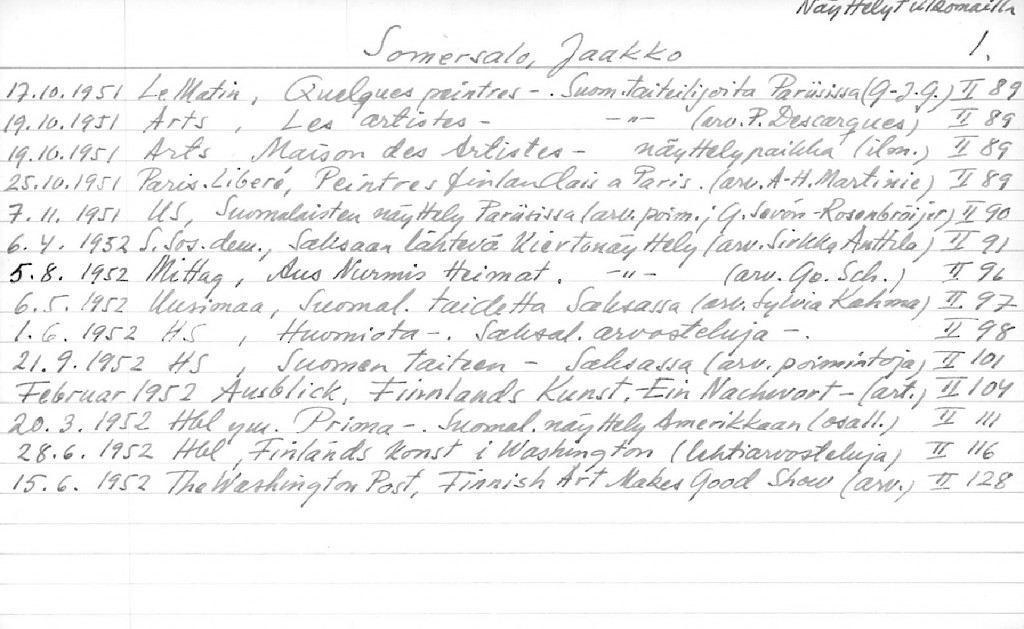 Näyttelyt ulkomailla
Somersalo, Jaakko 1.
17.10.1951 Le Matin, Quelques peintres -. Suom. taiteilijoita Pariisissa (G-J.G.) II 89
19.10.1951 Arts, Les artistes - -"- (arv. P. Descargues) II 89
19.10.1951 Arts, Maison des Artistes - näyttelypaikka (ilm.) II 89
25.10.1951 Paris.Liberé, Peintres finlandais a Paris. (arv. A-H. Martinie) II 89
7.11.1951 US, Suomalaisten näyttely Pariisissa (arv. poim.; G. Sevón-Rosenbröijer) II 90
6.4.1952 S.Sos.dem., Saksaan lähtevä kiertonäyttely (arv. Sirkka Anttila) II 91
5.8.1952 Mittag, Aus Nurmis Heimat. -"- (arv. Go. Sch.) II 96
6.5.1952 Uusimaa, Suomal. taidetta Saksassa (arv. Sylvia Kahma) II 97
1.6.1952 HS, Huomiota -. Saksal. arvosteluja -. II 98
21.9.1952 HS, Suomen taiteen - Saksassa (arv. poimintoja) II 101
Februar 1952 Ausblick, Finnlands Kunst.-Ein Nachwort - (art.) II 104
20.3.1952 Hbl ym. Prima -. Suomal. näyttely Amerikkaan (osall.) II 111
28.6.1952 Hbl, Finlands konst i Washington (lehtiarvosteluja) II 116
15.6.1952 The Washington Post, Finnish Art Makes Good Show (arv.) II 128